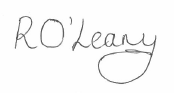 R O'Leary